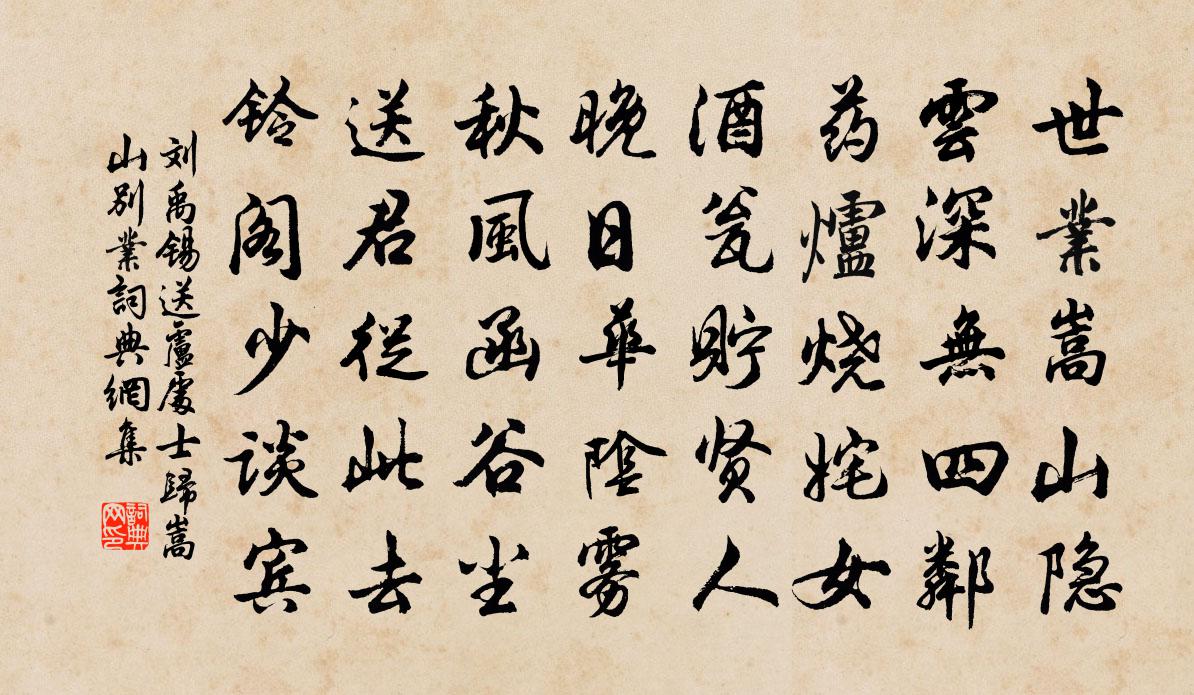 世業嵩山隐
雲深無四鄰
药爐烧姹女
酒瓮貯贤人
晚日華陰雾
秋風函谷尘
送君從此去
铃阁少谈宾
刘禹锡送盧處士歸嵩
山别業詞典網集
詞典
网印